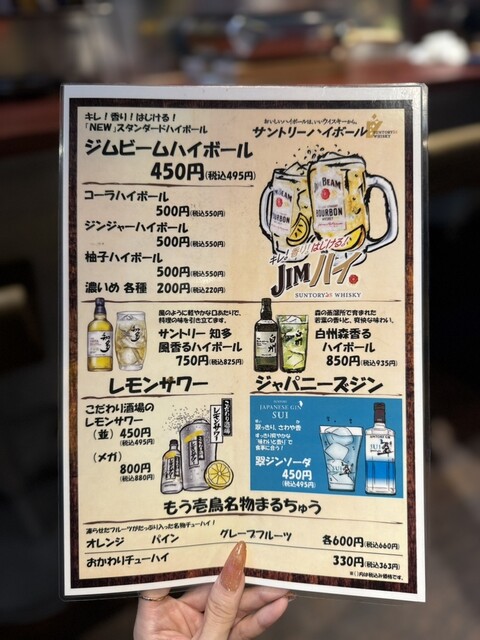 キレ！香り！はじける！
「NEW」スタンダードハイボール
ジムビームハイボール
450円(税込495円)
おいしいハイボールは、いいウイスキーから。
サントリーハイボール
SUNTORY
WHISKY
コーラハイボール
500円(税込550円)
ジンジャーハイボール
500円(税込550円)
柚子ハイボール
500円(税込550円)
濃いめ 各種 200円(税込220円)
JIM BEAM
BOURBON
キレ！香り！はじける！
JIMハイ。
SUNTORY WHISKY
風のように軽やかな口あたりで、
料理の味を引き立てます。
サントリー 知多
風香るハイボール
750円(税込825円)
森の蒸溜所で育まれた
若葉の香りと、爽快な味わい。
白州森香る
ハイボール
850円(税込935円)
レモンサワー
こだわり酒場の
レモンサワー
（並）450円
(税込495円)
（メガ）
800円
(税込880円)
こだわり酒場
レモンサワー
ジャパニーズジン
JAPANESE GIN
SUI
翠ジンソーダ
450円
(税込495円)
翠
もう壱鳥名物まるちゅう
凍らせたフルーツがたっぷり入った名物チューハイ！
オレンジ パイン グレープフルーツ 各600円(税込660円)
おかわりチューハイ 330円(税込363円)
※( )内は税込み価格です。